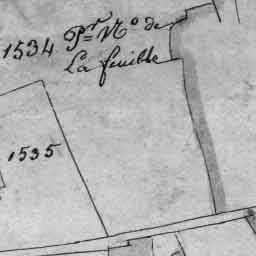 1534 Pr. Mo de
La feuille
1535